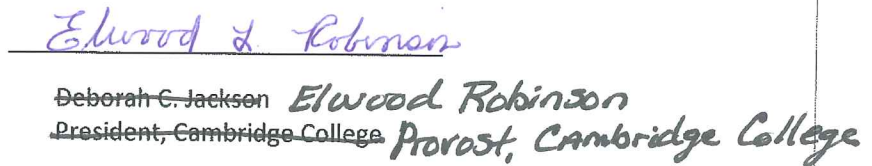 Elwood L Robinson
Deborah C. Jackson Elwood Robinson
President, Cambridge College Provost, Cambridge College